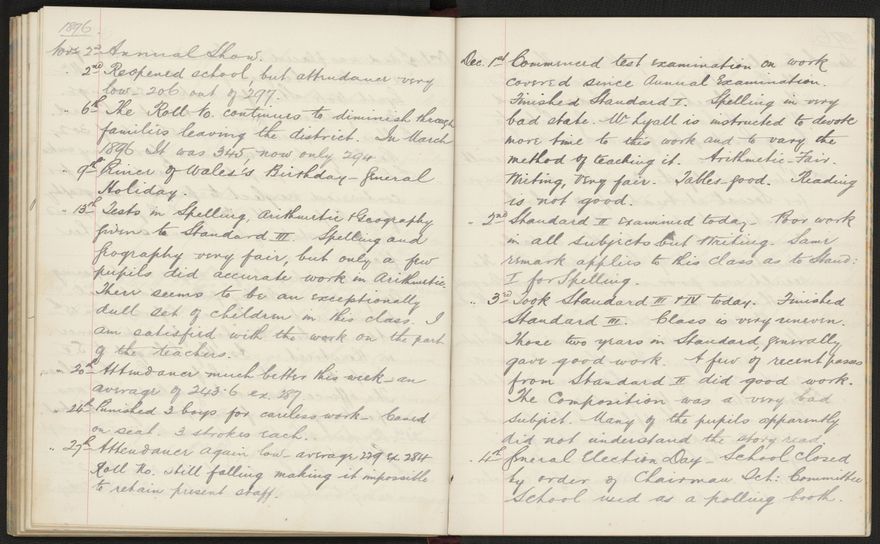 1896.
Nov. 2nd Annual Show.
" 2nd Reopened school, but attendance very
low - 206 out of 297.
" 6th The Roll No. continues to diminish through
families leaving the district. In March
1896 It was 345, now only 294
" 9th Prince of Wales's Birthday - General
Holiday.
" 13th Tests in Spelling, Arithmetic & Geography
given to Standard III. Spelling and
Geography very fair, but only a few
pupils did accurate work in Arithmetic.
There seems to be an exceptionally
dull set of children in this class. I
am satisfied with the work on the part
of the teachers.
" 20th Attendance much better this week - an
average of 243.6 ex. 287
" 24th Punished 2 boys for careless work - Caned
on seat. 3 strokes each.
" 27th Attendance again low - average 229 ex. 284
Roll No. still falling making it impossible
to retain present staff.
Dec. 1st Commenced test examination on work
covered since Annual Examination.
Finished Standard I. Spelling in very
bad state. Whyall is instructed to devote
more time to this work and to vary the
method of teaching it. Arithmetic - Fair.
Writing, very fair. Tables - good. Reading
is not good.
" 2nd Standard II examined today - Poor work
in all subjects but Writing. Same
remark applies to this class as to Stand:
I for Spelling.
" 3rd Took Standard III & IV today. Finished
Standard III. Class is very uneven.
Those two years in Standard generally
gave good work. A few of recent passes
from Standard II did good work.
The Composition was a very bad
subject. Many of the pupils apparently
did not understand the story read.
" 4th General Election Day - School closed
by order of Chairman Sch: Committee
School used as a polling booth.